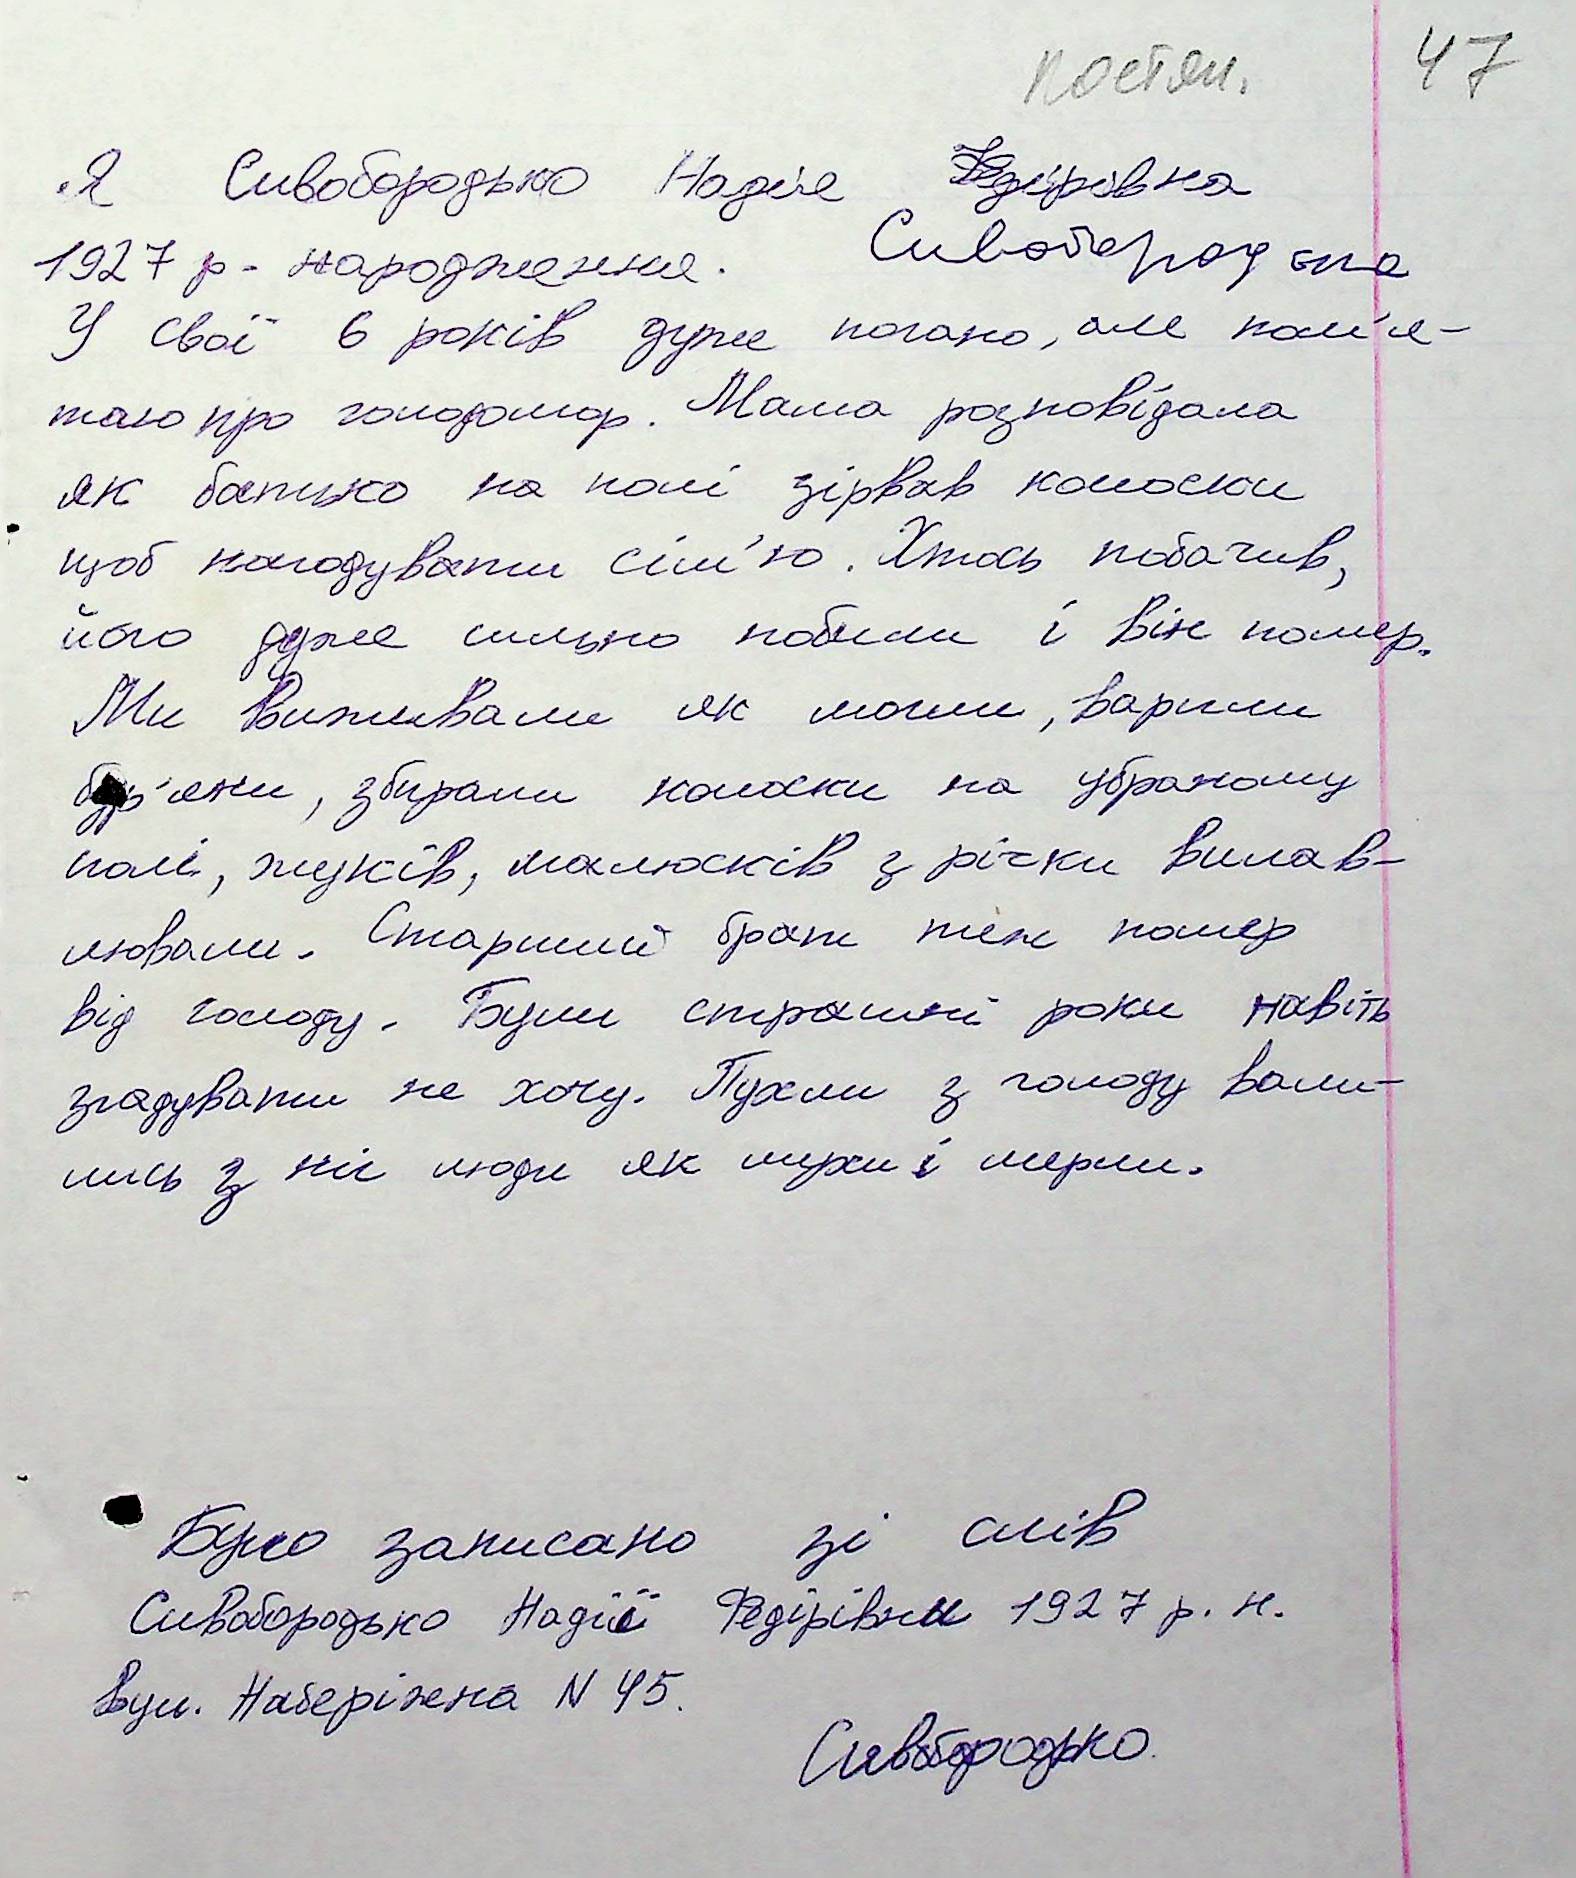 постян. 47
Я Сивобородько Надія Федірівна
1927 р. народження. Сивобородько
У свої 6 років дуже погано, але пам'я-
таю про голодомор. Мама розповідала
як батько на полі зірвав колоски
щоб нагодувати сім'ю. Хтось побачив,
його дуже сильно побили і він помер.
Ми виживали як могли, варили
бур'яни, збирали колоски на убраному
полі, жуків, малюсків з річки вилав-
лювали. Старший брат теж помер
від голоду. Були страшні роки навіть
згадувати не хочу. Пухли з голоду вали-
лись з ніг люди як мухи і мерли.
Було записано зі слів
Сивобородько Надії Федірівни 1927 р. н.
вул. Наберіжна N 45.
Сивобородько